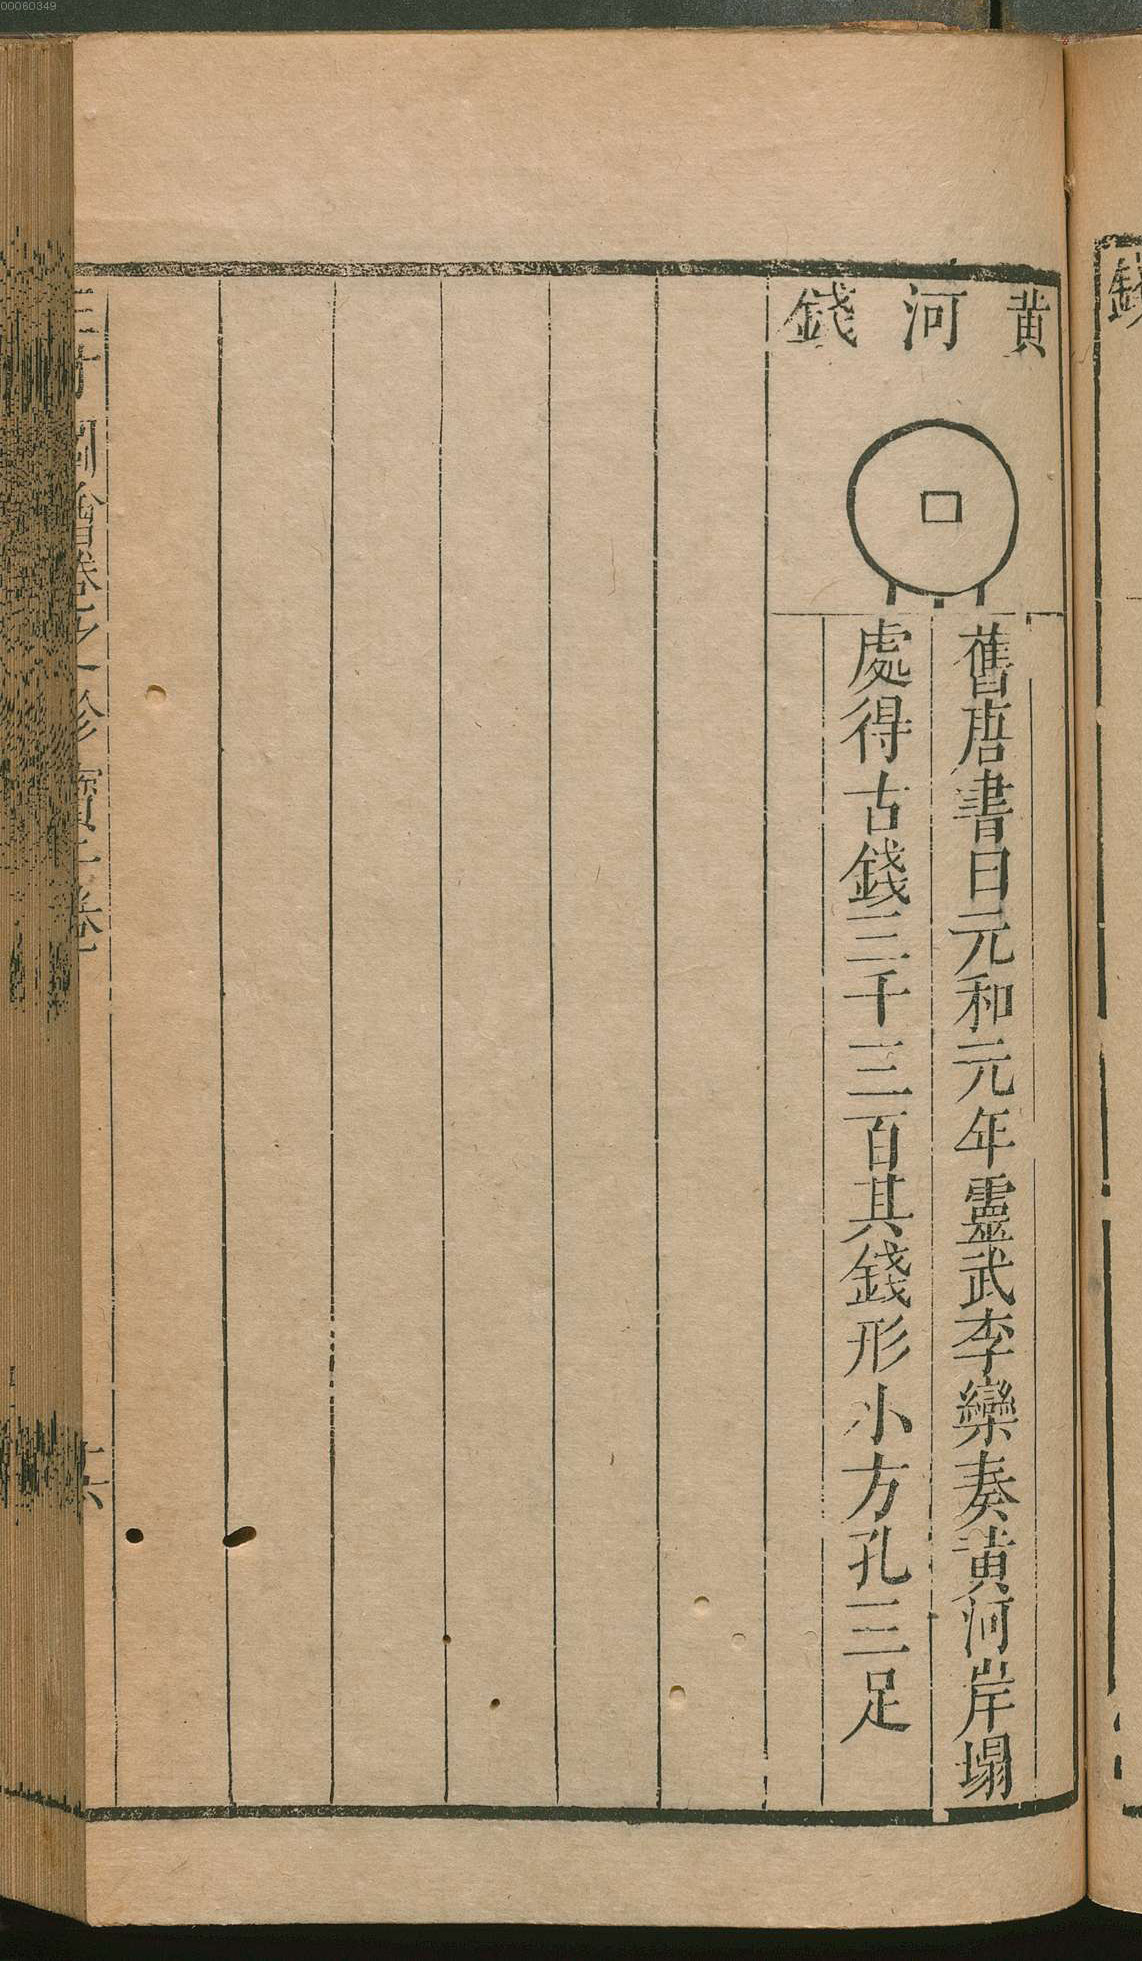 00060349
黄河錢
舊唐書曰元和元年靈武李欒奏黄河岸塌
處得古錢三千三百其錢形小方孔三足
圖會卷之一珍寶
六
錢